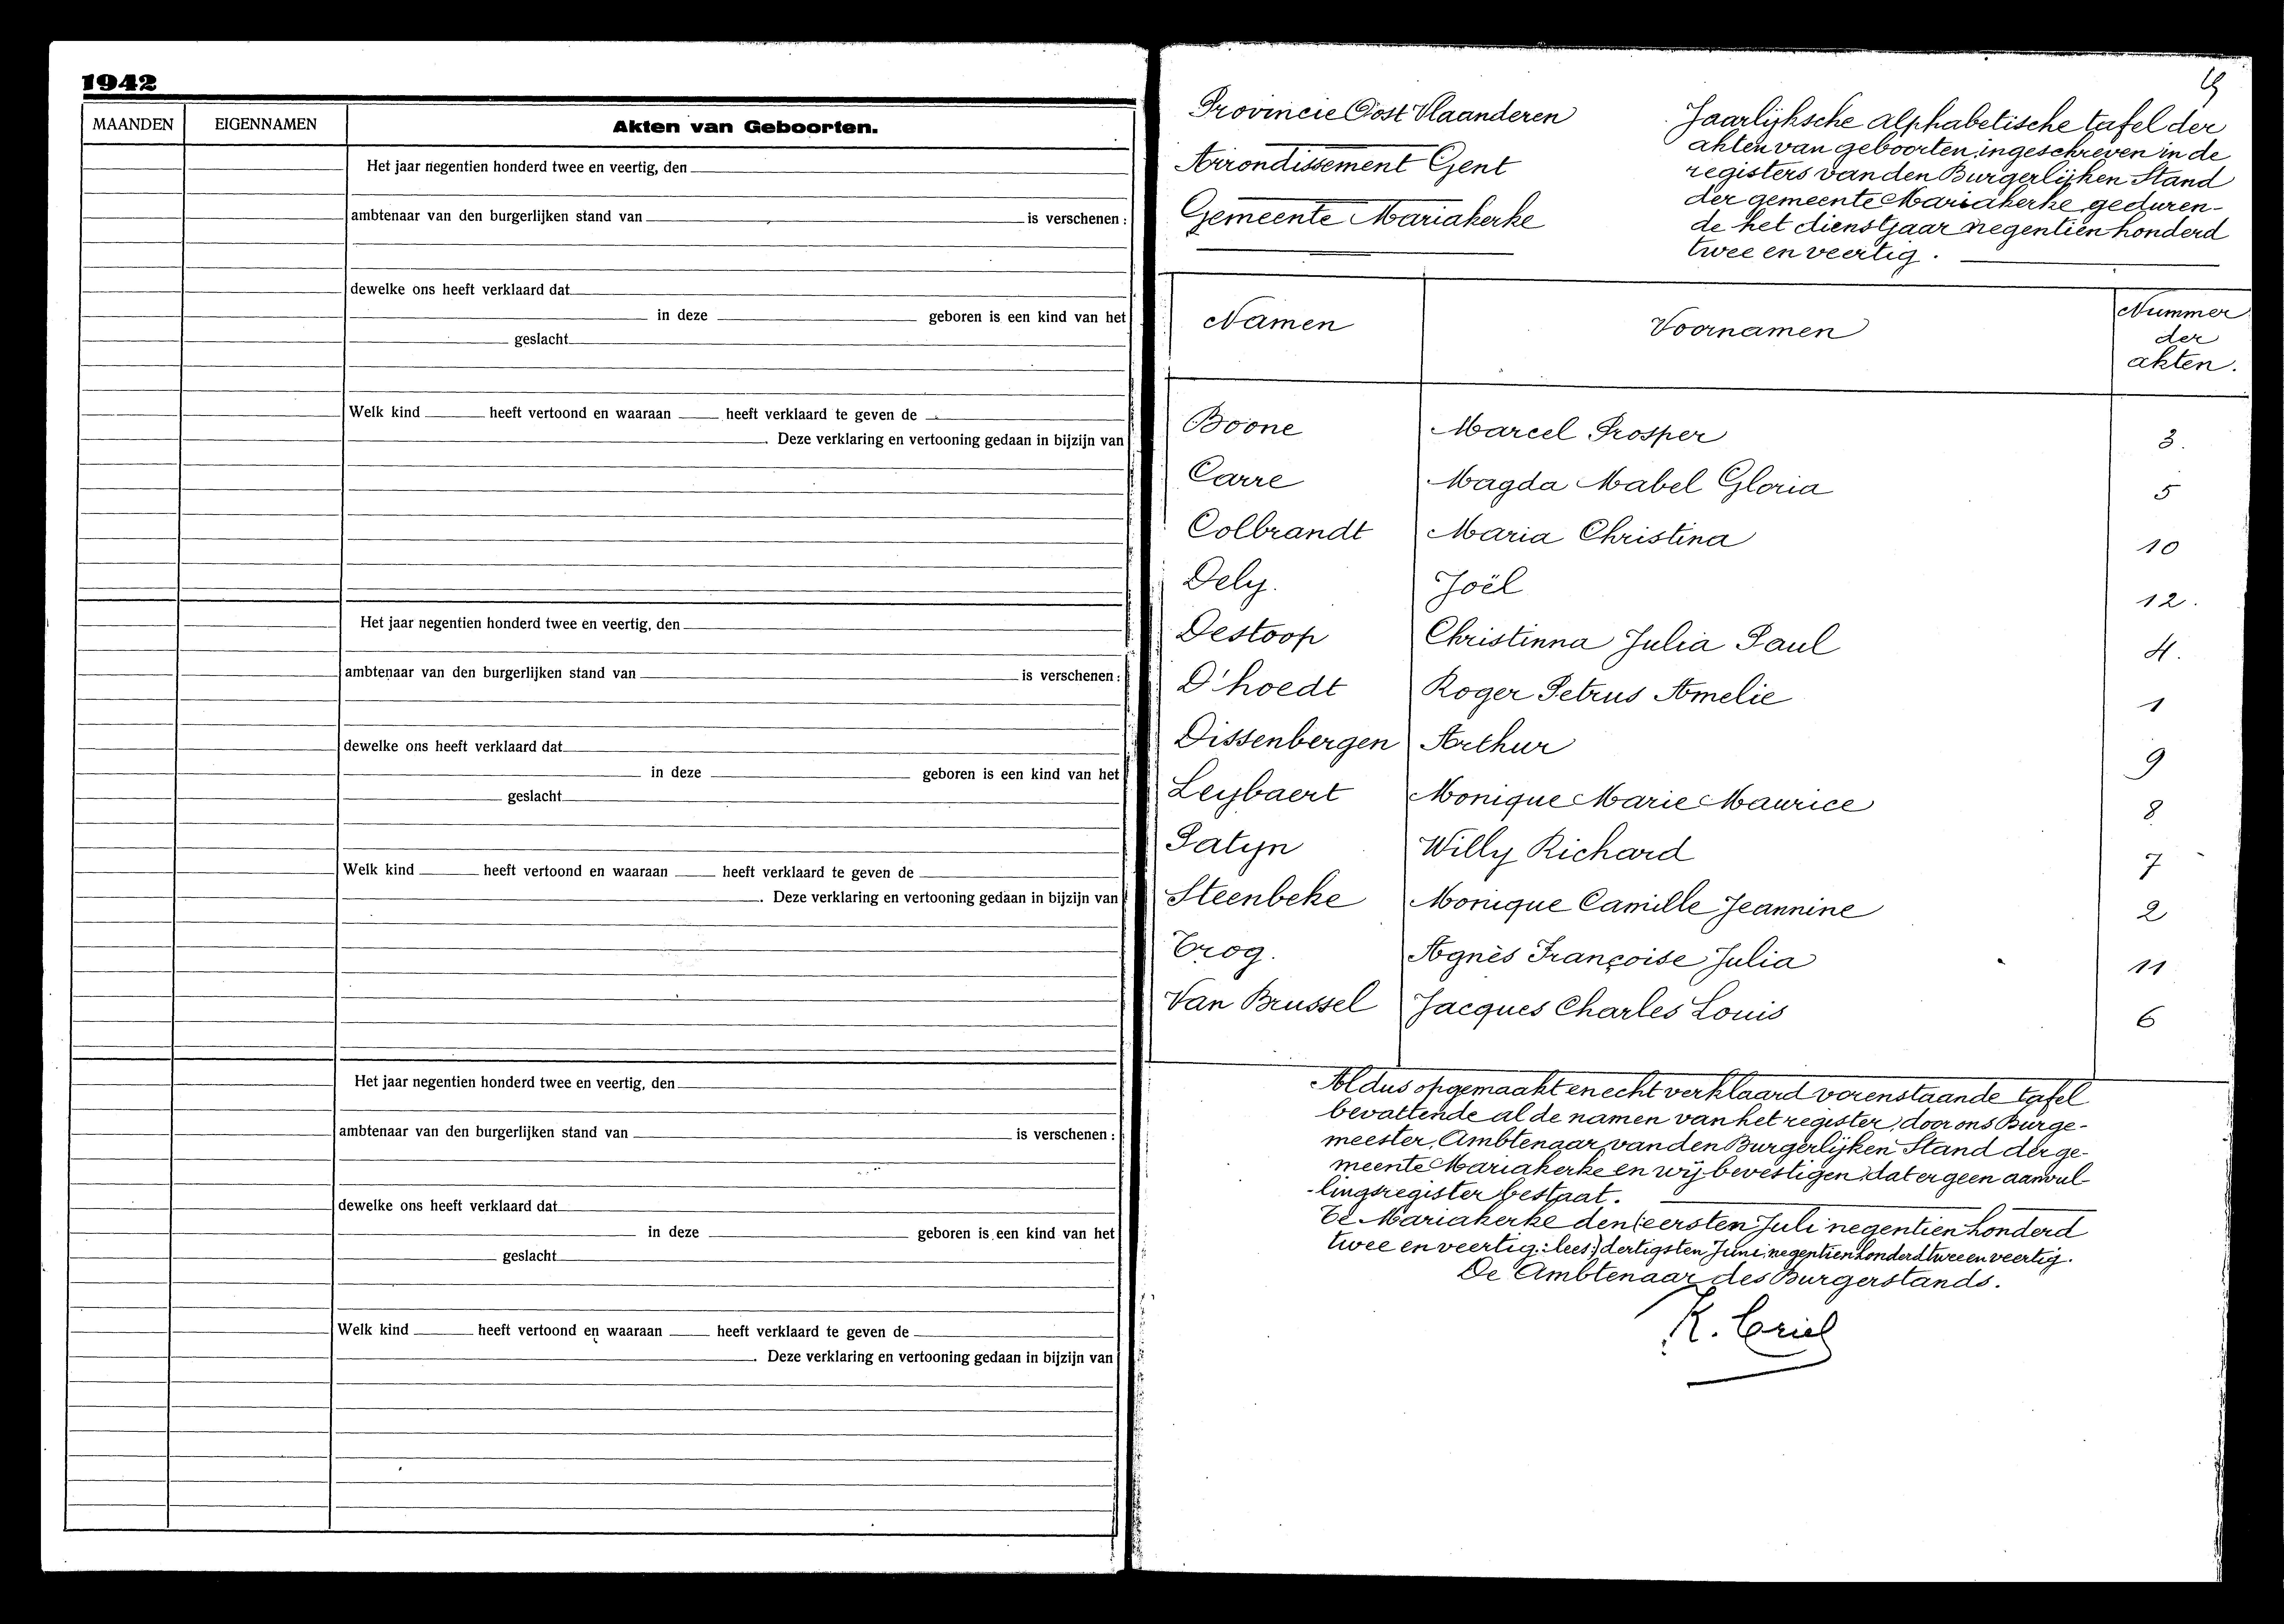 1942
MAANDEN EIGENNAMEN Akten van Geboorten.
Het jaar negentien honderd twee en veertig, den
ambtenaar van den burgerlijken stand van is verschenen :
dewelke ons heeft verklaard dat
in deze geboren is een kind van het
geslacht
Welk kind heeft vertoond en waaraan heeft verklaard te geven de
. Deze verklaring en vertooning gedaan in bijzijn van
Het jaar negentien honderd twee en veertig, den
ambtenaar van den burgerlijken stand van is verschenen :
dewelke ons heeft verklaard dat
in deze geboren is een kind van het
geslacht
Welk kind heeft vertoond en waaraan heeft verklaard te geven de
. Deze verklaring en vertooning gedaan in bijzijn van
Het jaar negentien honderd twee en veertig, den
ambtenaar van den burgerlijken stand van is verschenen :
dewelke ons heeft verklaard dat
in deze geboren is een kind van het
geslacht
Welk kind heeft vertoond en waaraan heeft verklaard te geven de
. Deze verklaring en vertooning gedaan in bijzijn van
Provincie Oost Vlaanderen
Arrondissement Gent
Gemeente Mariakerke
Jaarlijksche alphabetische tafel der
akten van geboorten, ingeschreven in de
registers van den Burgerlijken Stand
der gemeente Mariakerke, geduren-
de het dienstjaar negentien honderd
twee en veertig.
Namen Voornamen Nummer
der
akten.
Boone Marcel Prosper 3.
Carre Magda Mabel Gloria 5
Colbrandt Maria Christina 10
Dely. Joël 12.
Destoop Christinna Julia Paul 4.
D'hoedt Roger Petrus Amelie 1
Dissenbergen Arthur 9
Leybaert Monique Marie Maurice 8
Patyn Willy Richard 7
Steenbeke Monique Camille Jeannine 2
Trog. Agnès Françoise Julia 11
Van Brussel Jacques Charles Louis 6
Aldus opgemaakt en echt verklaard vorenstaande tafel
bevattende al de namen van het register, door ons Burge-
meester, Ambtenaar van den Burgerlijken Stand der ge-
meente Mariakerke en wij bevestigen, dat er geen aanvul-
-lingsregister bestaat.
Te Mariakerke den (eersten Juli negentien honderd
twee en veertig : lees :) dertigsten Juni negentien honderd twee en veertig.
De Ambtenaar des Burgerstands.
K. Criel